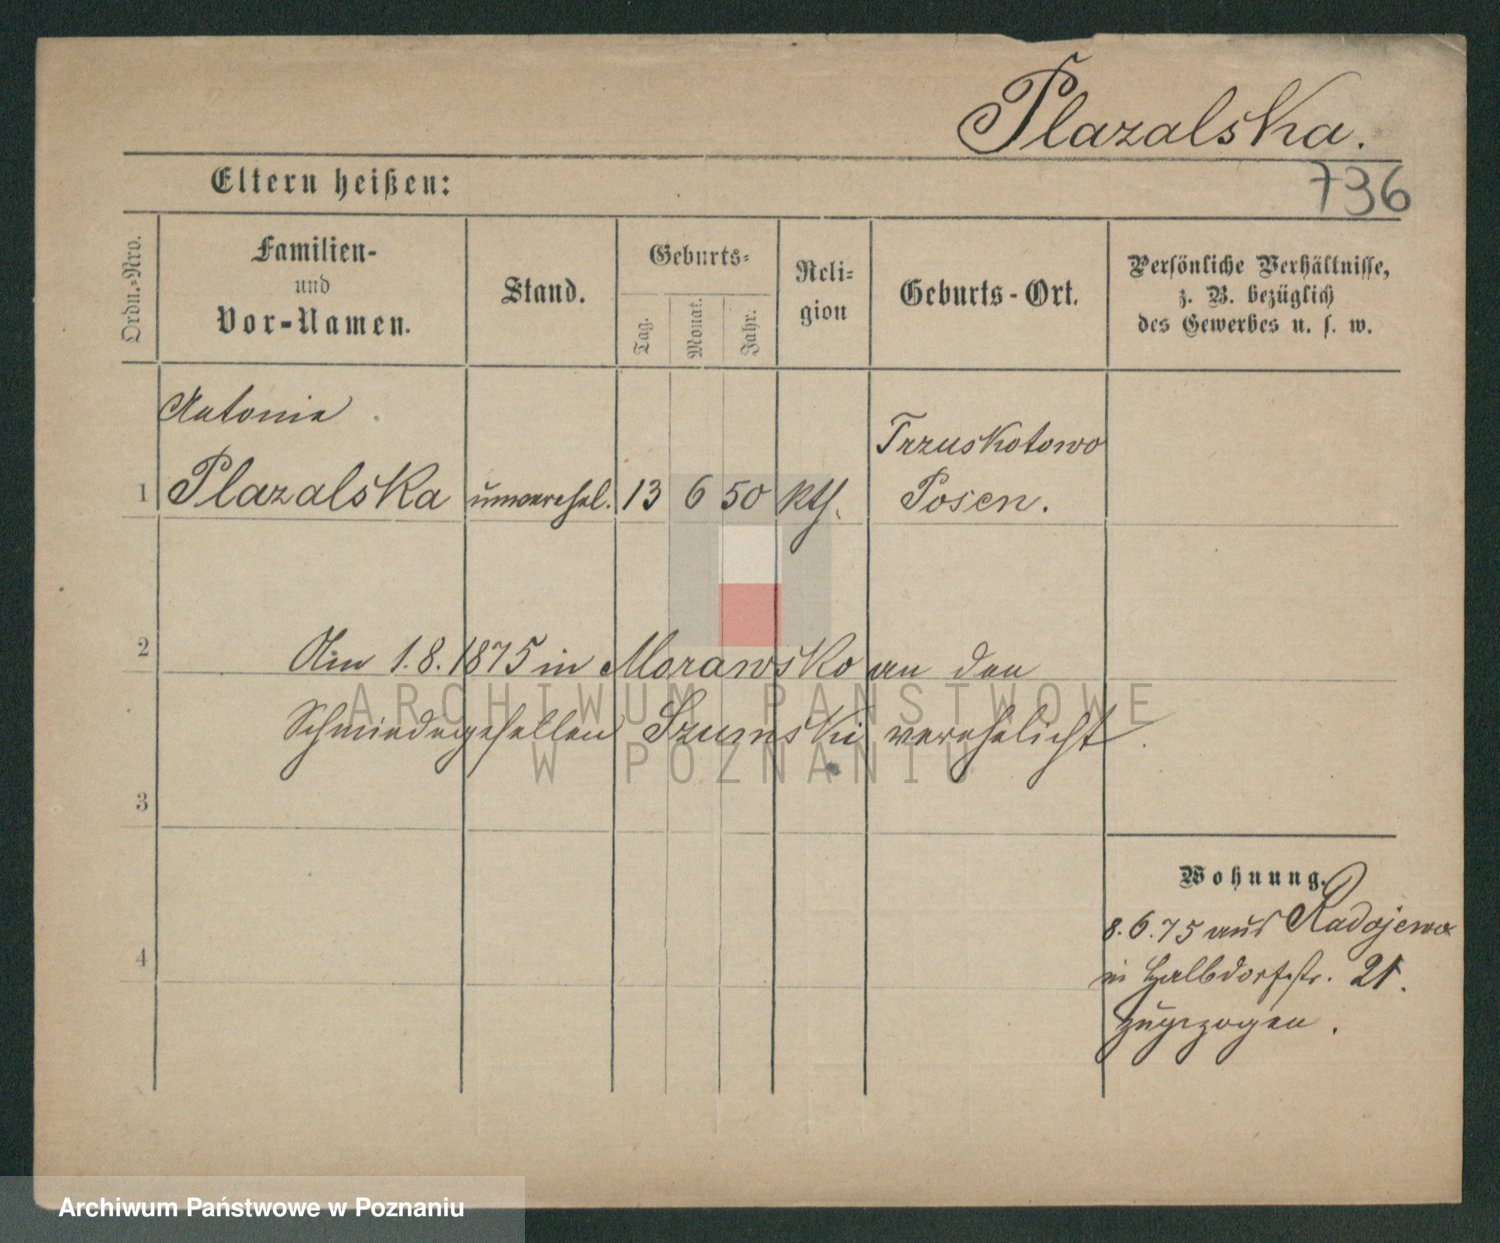 Plazalska.
Eltern heißen:
736
Ordn.-Nro.
Familien-
und
Vor-Namen.
Stand.
Geburts-
Tag.
Monat.
Jahr.
Reli-
gion
Geburts-Ort.
Persönliche Verhältnisse,
z. B. bezüglich
des Gewerbes u. s. w.
Antonie
Trzuskotowo
1 Plazalska unverehel. 13 6 50 kth. Posen.
2
Am 1.8.1875 in Morawsko an den
Schmiedegesellen Szumski verehelicht.
3
Wohnung.
8.6.75 aus Radojewo
4
in Halbdorfstr. 21.
zugezogen.
ARCHIWUM PAŃSTWOWE
W POZNANIU
Archiwum Państwowe w Poznaniu